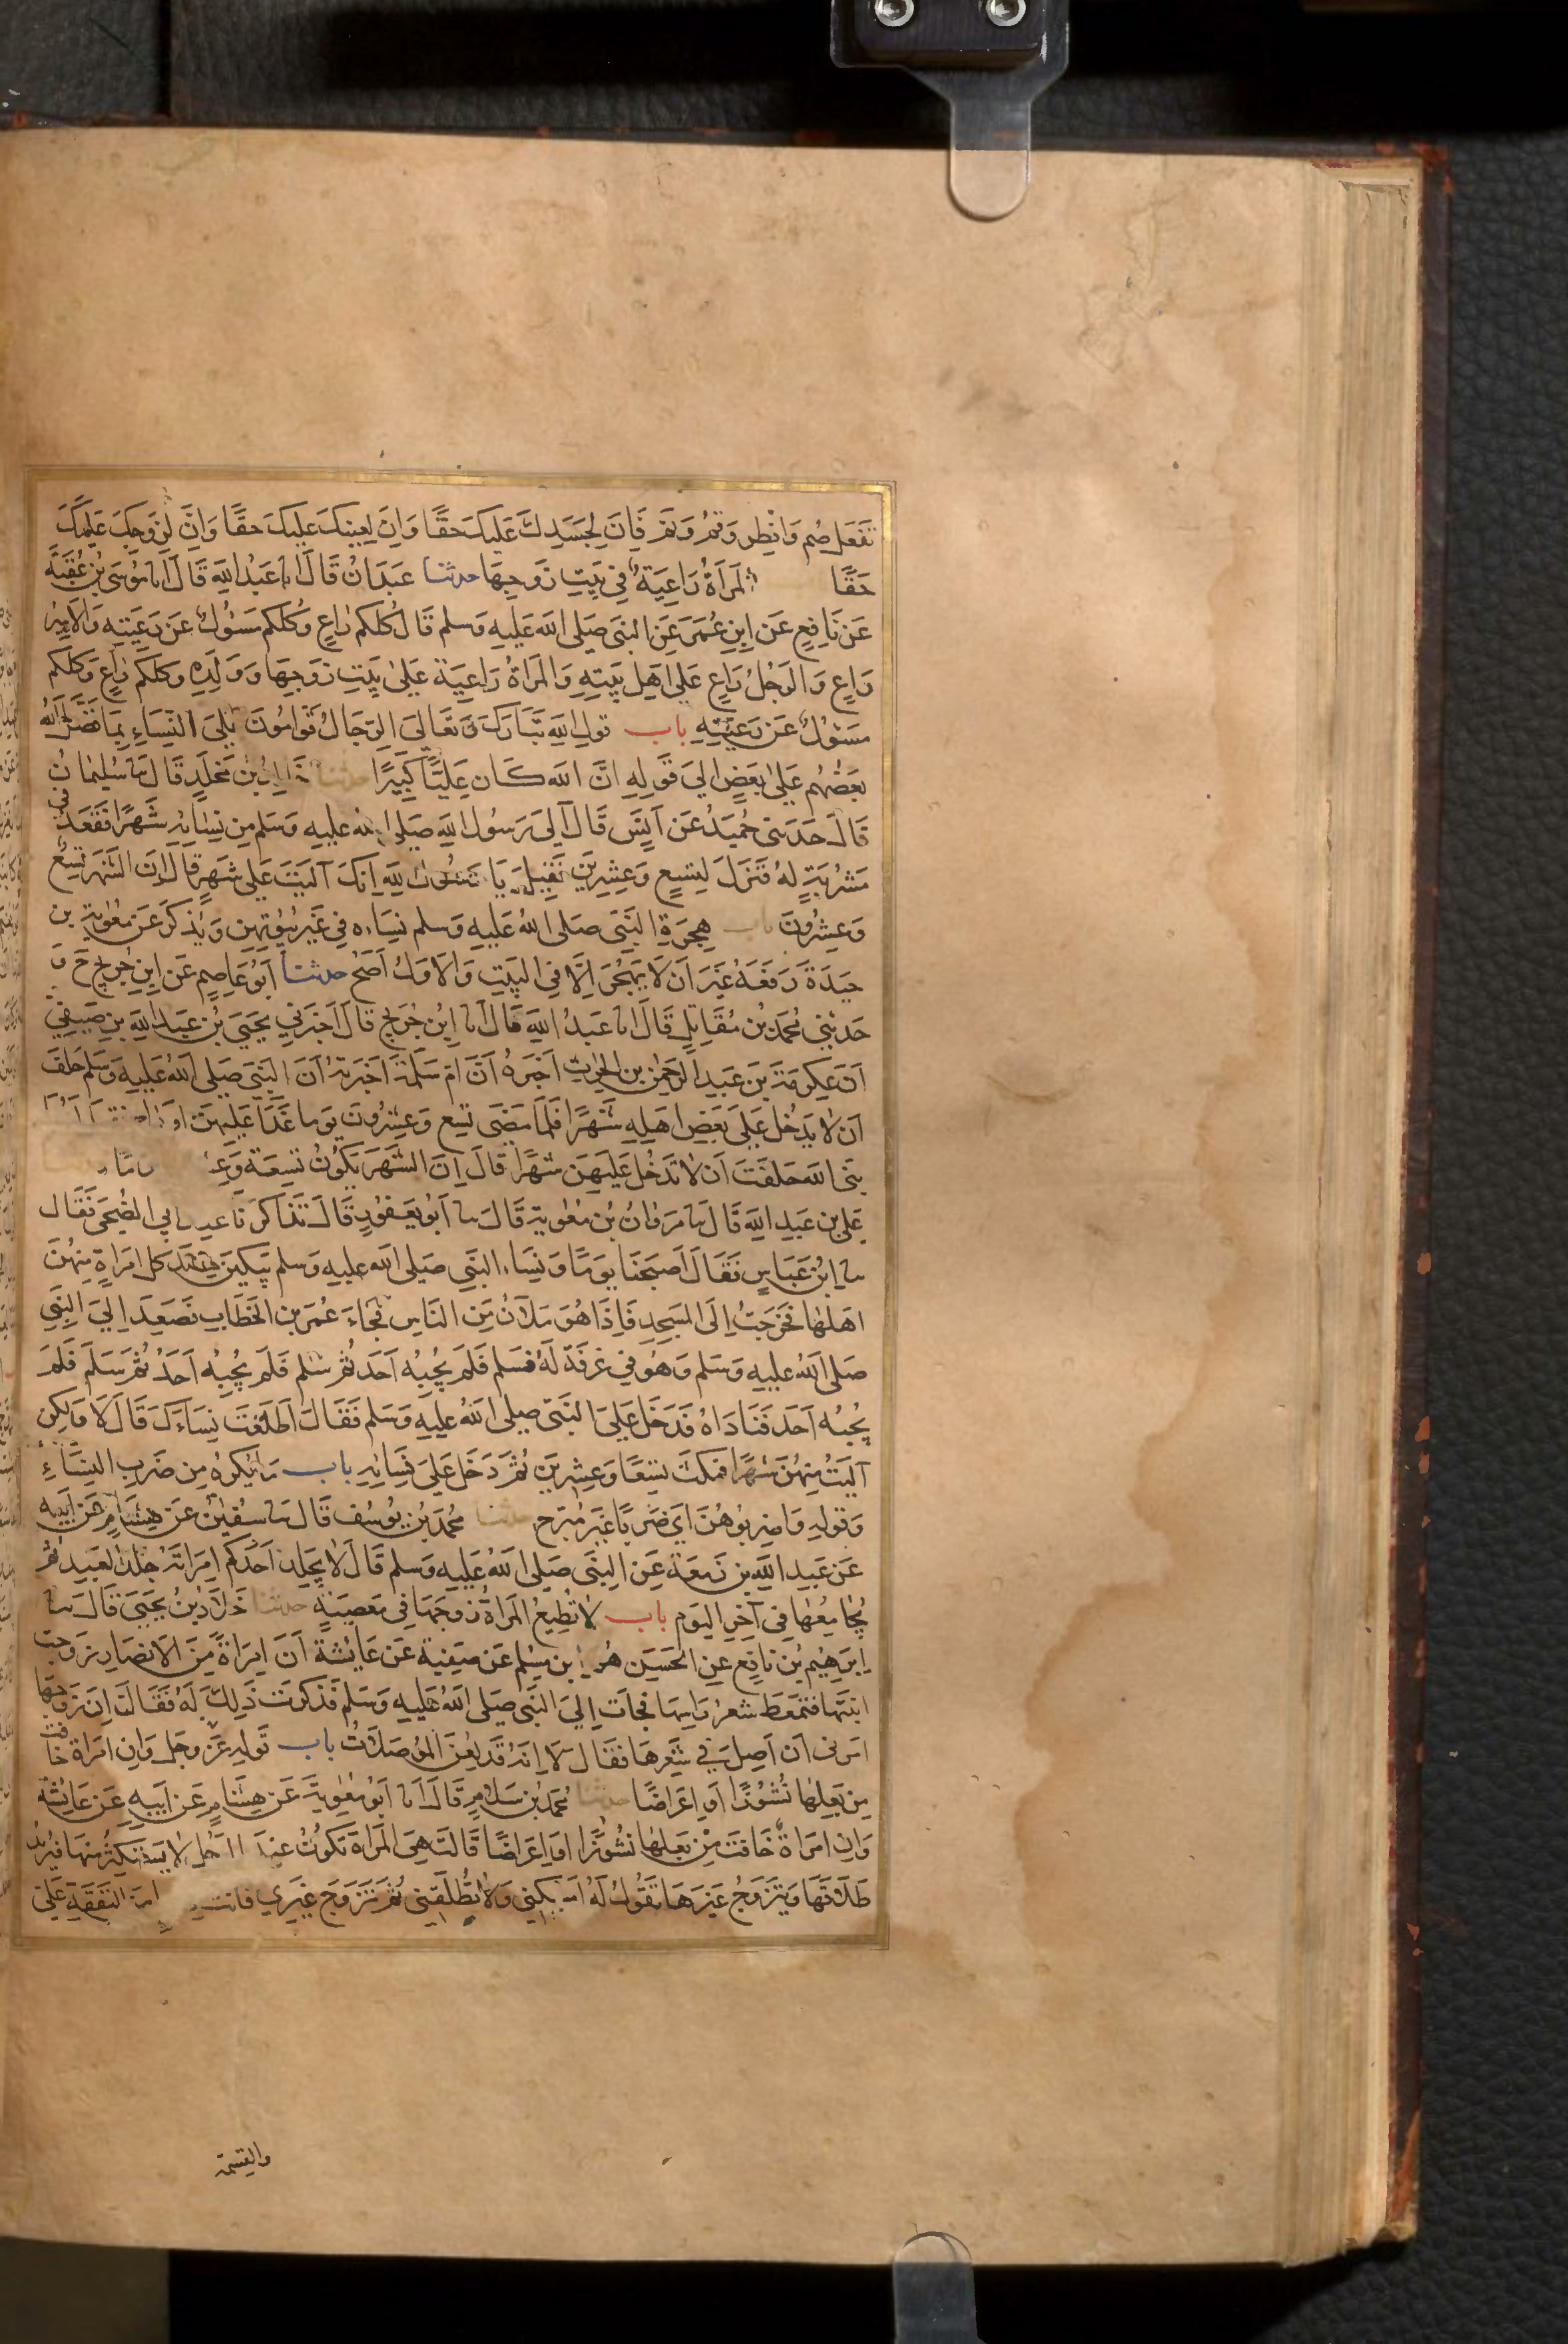 تَفعَل صُم وَافطِر وَقُم وَنَم فَاِنَّ لِجَسَدِكَ عَلَيكَ حَقًّا وَاِنَّ لِعَينِكَ عَلَيكَ حَقًّا وَاِنَّ لِزَوجِكَ عَلَيكَ
حَقًّا المَرأَةُ رَاعِيَةٌ فِي بَيتِ زَوجِهَا حدثنا عَبدَانُ قَالَ انا عَبدُ اللهِ قَالَ انا مُوسَى بنُ عُقبَةَ
عَن نَافِعٍ عَن ابنِ عُمَرَ عَنِ النبي صَلى الله عَليهِ وَسلم قَالَ كُلكُم رَاعٍ وَكُلكُم مَسئولٌ عَن رَعِيَّتِهِ وَالاَمِيرُ
رَاعٍ وَالرَجُلُ رَاعٍ عَلى اَهلِ بَيتِهِ وَالمَراةُ رَاعِيَة عَلىٰ بَيتِ زَوجِهَا وَوَلَدِهِ وَكلكم رَاعٍ وَكلكم
مَسئولٌ عَن رَعِيَّتِهِ باب قول اللهِ تَبَارَكَ وَتَعَالىَ الرِجَالُ قَوَّامُونَ عَلىَ النِسَاءِ بِمَا فَضَّلَ اللهُ
بَعضَهُم عَلىٰ بَعضٍ الىَ قَولِهِ انَّ الله كَان عَلِيًّا كَبِيرًا حدثنا خَالِدُ بن مَخلَدٍ قَالَ نا سُليمانُ
قَالَ حَدثنى حُمَيدٌ عَن اَنَسٍ قَالَ آلىَ رَسُولُ اللهِ صَلى الله عليهِ وَسَلم مِن نِسَائِهِ شَهرًا فَقَعَدَ في
مَشرُبَةٍ لهُ فَنَزَلَ لِتِسعٍ وَعِشرِينَ فَقِيلَ يَا رَسُولَ اللهِ اِنَكَ آلَيتَ عَلى شَهرٍ قال اِنَ الشَهرَ تِسعٌ
وَعِشرُونَ باب هِجرَةِ النَبىّ صَلى اللهُ عَليهِ وَسلم نِسَاءه فِي غَيرِ بُيُوتِهِنَ وَيُذكَرُ عَن مُعٰوِيةَ بن
حَيدَةَ رَفعَهُ غَيرَ اَن لاَ يُهجَرَ اِلَّا فِي البَيتِ وَالاَوَلُ اَصَحُ حدثنا اَبُو عَاصِمٍ عَن ابنِ جُرَيجٍ ح وَ
حَدثني مُحمد بن مُقَاتِلٍ قَالَ انا عَبدُ الله قال انا ابنُ جُرَيجٍ قَالَ اَخبَرَنِي يَحيىَ بنُ عَبدِ اللهِ بنِ صَيفِي
اَنَ عِكرِمَةَ بنَ عَبدِ الرَحمٰنِ بن الحٰرِثِ اَخبَرَهُ اَنَّ امَّ سَلَمَةَ اَخبَرَتهُ اَنَ النَبِيَ صَلى اللهُ عَليهِ وَسَلم حَلَفَ
اَن لا يَدخُلَ عَلىَ بَعضِ اهلِهِ شَهرًا فَلَمّا مَضَى تِسع وَعِشرُونَ يَومًا غَدَا عَلَيهِنَ او راح
نبي الله حَلَفتَ اَن لا تَدخُلَ عَلَيهِنَ شَهرًا قَالَ اِنَ الشَهرَ يَكُونُ تِسعَةً وَعِ
عَلي بن عَبدِ اللهِ قَالَ نا مَروَانُ بن مُعٰوِيةَ قَالَ نا اَبُو يَعفُورٍ قَالَ تَذَاكَرنَا عِند ابي الضُحى فَقَال
نا ابنُ عَبَاسٍ فَقَالَ اَصبَحنَا يَومًا وَنِسَاءُ النبي صَلى الله عليهِ وَسلم يَبكِينَ عِندَ كل امرَاةٍ مِنهُنَ
اهلُهَا فَخَرَجتُ اِلَى المَسجِدِ فَاِذَا هُوَ مَلآنُ مِنَ النَاسِ فَجَاءَ عُمَر بن الخَطَابِ فَصَعِدَ اِلىَ النَبِي
صَلى اللهُ عليهِ وَسَلم وَهُوَ في غرفَة لَهُ فسَلم فَلَم يُجِبهُ اَحَد ثُمَ سَلم فَلَم يُجِبهُ اَحَدٌ ثُمَّ سَلَم فَلَم
يُجِبهُ اَحَد فَنَادَاهُ فَدَخَلَ عَلىَ النَبي صلى اللهُ عليهِ وَسَلم فَقَالَ اَطَلَّقتَ نِسَاءَكَ قَالَ لا وَلكِن
آلَيتُ مِنهُنَ شَهرًا فمكَثَ تِسعًا وَعِشرِينَ ثُمَّ دَخَلَ عَلىَ نِسَائِهِ باب مَا يُكرَهُ مِن ضَربِ النِسَاءِ
وَقولِهِ وَاضرِبُوهُنَّ اَي ضَربًا غَيرَ مُبَرّحٍ حدثنا مُحَمَّد بن يُوسُف قَال نا سُفين عَن هِشامٍ عَن اَبِيهِ
عَن عَبدِ اللهِ بن زَمعَةَ عَنِ النبَي صَلى اللهُ عَليهِ وَسلم قَالَ لا يَجلِد اَحَدُكم امرَاتَهُ جَلدَ العَبدِ ثُمَّ
يُجَامِعُهَا فِي آخِرِ اليَوم باب لا تُطِيعُ المَراةُ زَوجَهَا فِي مَعصِيَةٍ حدثنا خَلَّادُ بنُ يَحيىَ قَالَ نا
اِبرٰهِيمُ بن نافِعٍ عَنِ الحَسَنِ هُوَ ابن مسلم عَن صَفِية عَن عَائِشَةَ اَنَ امرَاةً مِنَ الاَنصَارِ زَوجَت
ابنتَهَا فَتَمَعَّطَ شعرُ رَاسِهَا فَجَات اِلىَ النَبَي صَلى اللهُ عَليهِ وَسَلم فَذكرَت ذَلِكَ لَهُ فَقَالَت اِنَ زَوجَهَا
امرَني اَن اَصِلَ في شَعرِهَا فقَالَ لاَ اِنَهُ قَد لُعِنَ المُوصلاتُ باب قَولِهِ عَزَّ وجَل وَاِنِ امرَاة خَافت
مِن بَعلِهَا نُشُوزًا اَو اِعرَاضًا حدثنا مُحَمد بن سَلامٍ قَالَ انا اَبُو مُعٰوِيةَ عَن هِشَامٍ عَن اَبِيهِ عَن عَائِشَةَ
وَاِن امرَاةٌ خَافَت مِن بَعلِهَا نُشُوزًا اَو اِعرَاضًا قَالَت هِيَ المَراةُ تَكونُ عِندَ الرجُلِ لا يَستَكثِرُ مِنهَا فَيُريدُ
طَلاقَهَا وَيَتَزَوَجُ غَيرَهَا تَقُولُ لَهُ اَمسِكني وَلا تُطلِّقَنِي ثُمَّ تَزَوج غَيرِي فانت مِنَ النَفَقَةِ عَلىَّ
والقسمة